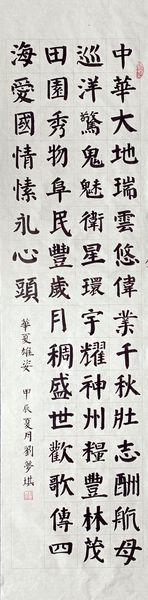 中華大地瑞雲悠偉業千秋壯志酬航母
巡洋驚鬼魅衛星環宇耀神州糧豐林茂
田園秀物阜民豐歲月稠盛世歡歌傳四
海愛國情愫永心頭
華夏雄姿 甲辰夏月劉夢琪